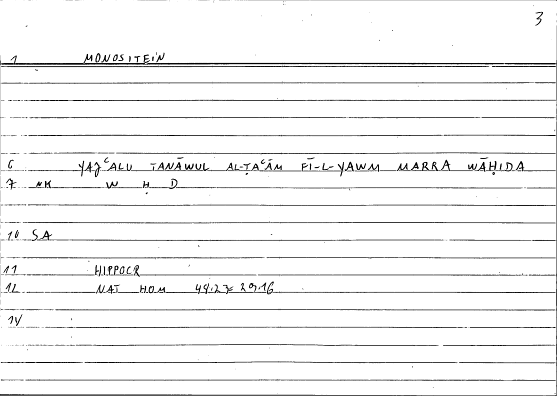 3
1 MONOSITEIN
6 YAJʿALU TANĀWUL AL-ṬAʿĀM FĪ-L-YAWM MARRA WĀḤIDA
7 NK W Ḥ D
10 SA
11 HIPPOCR
12 NAT HOM 44.27 = 29.16
14